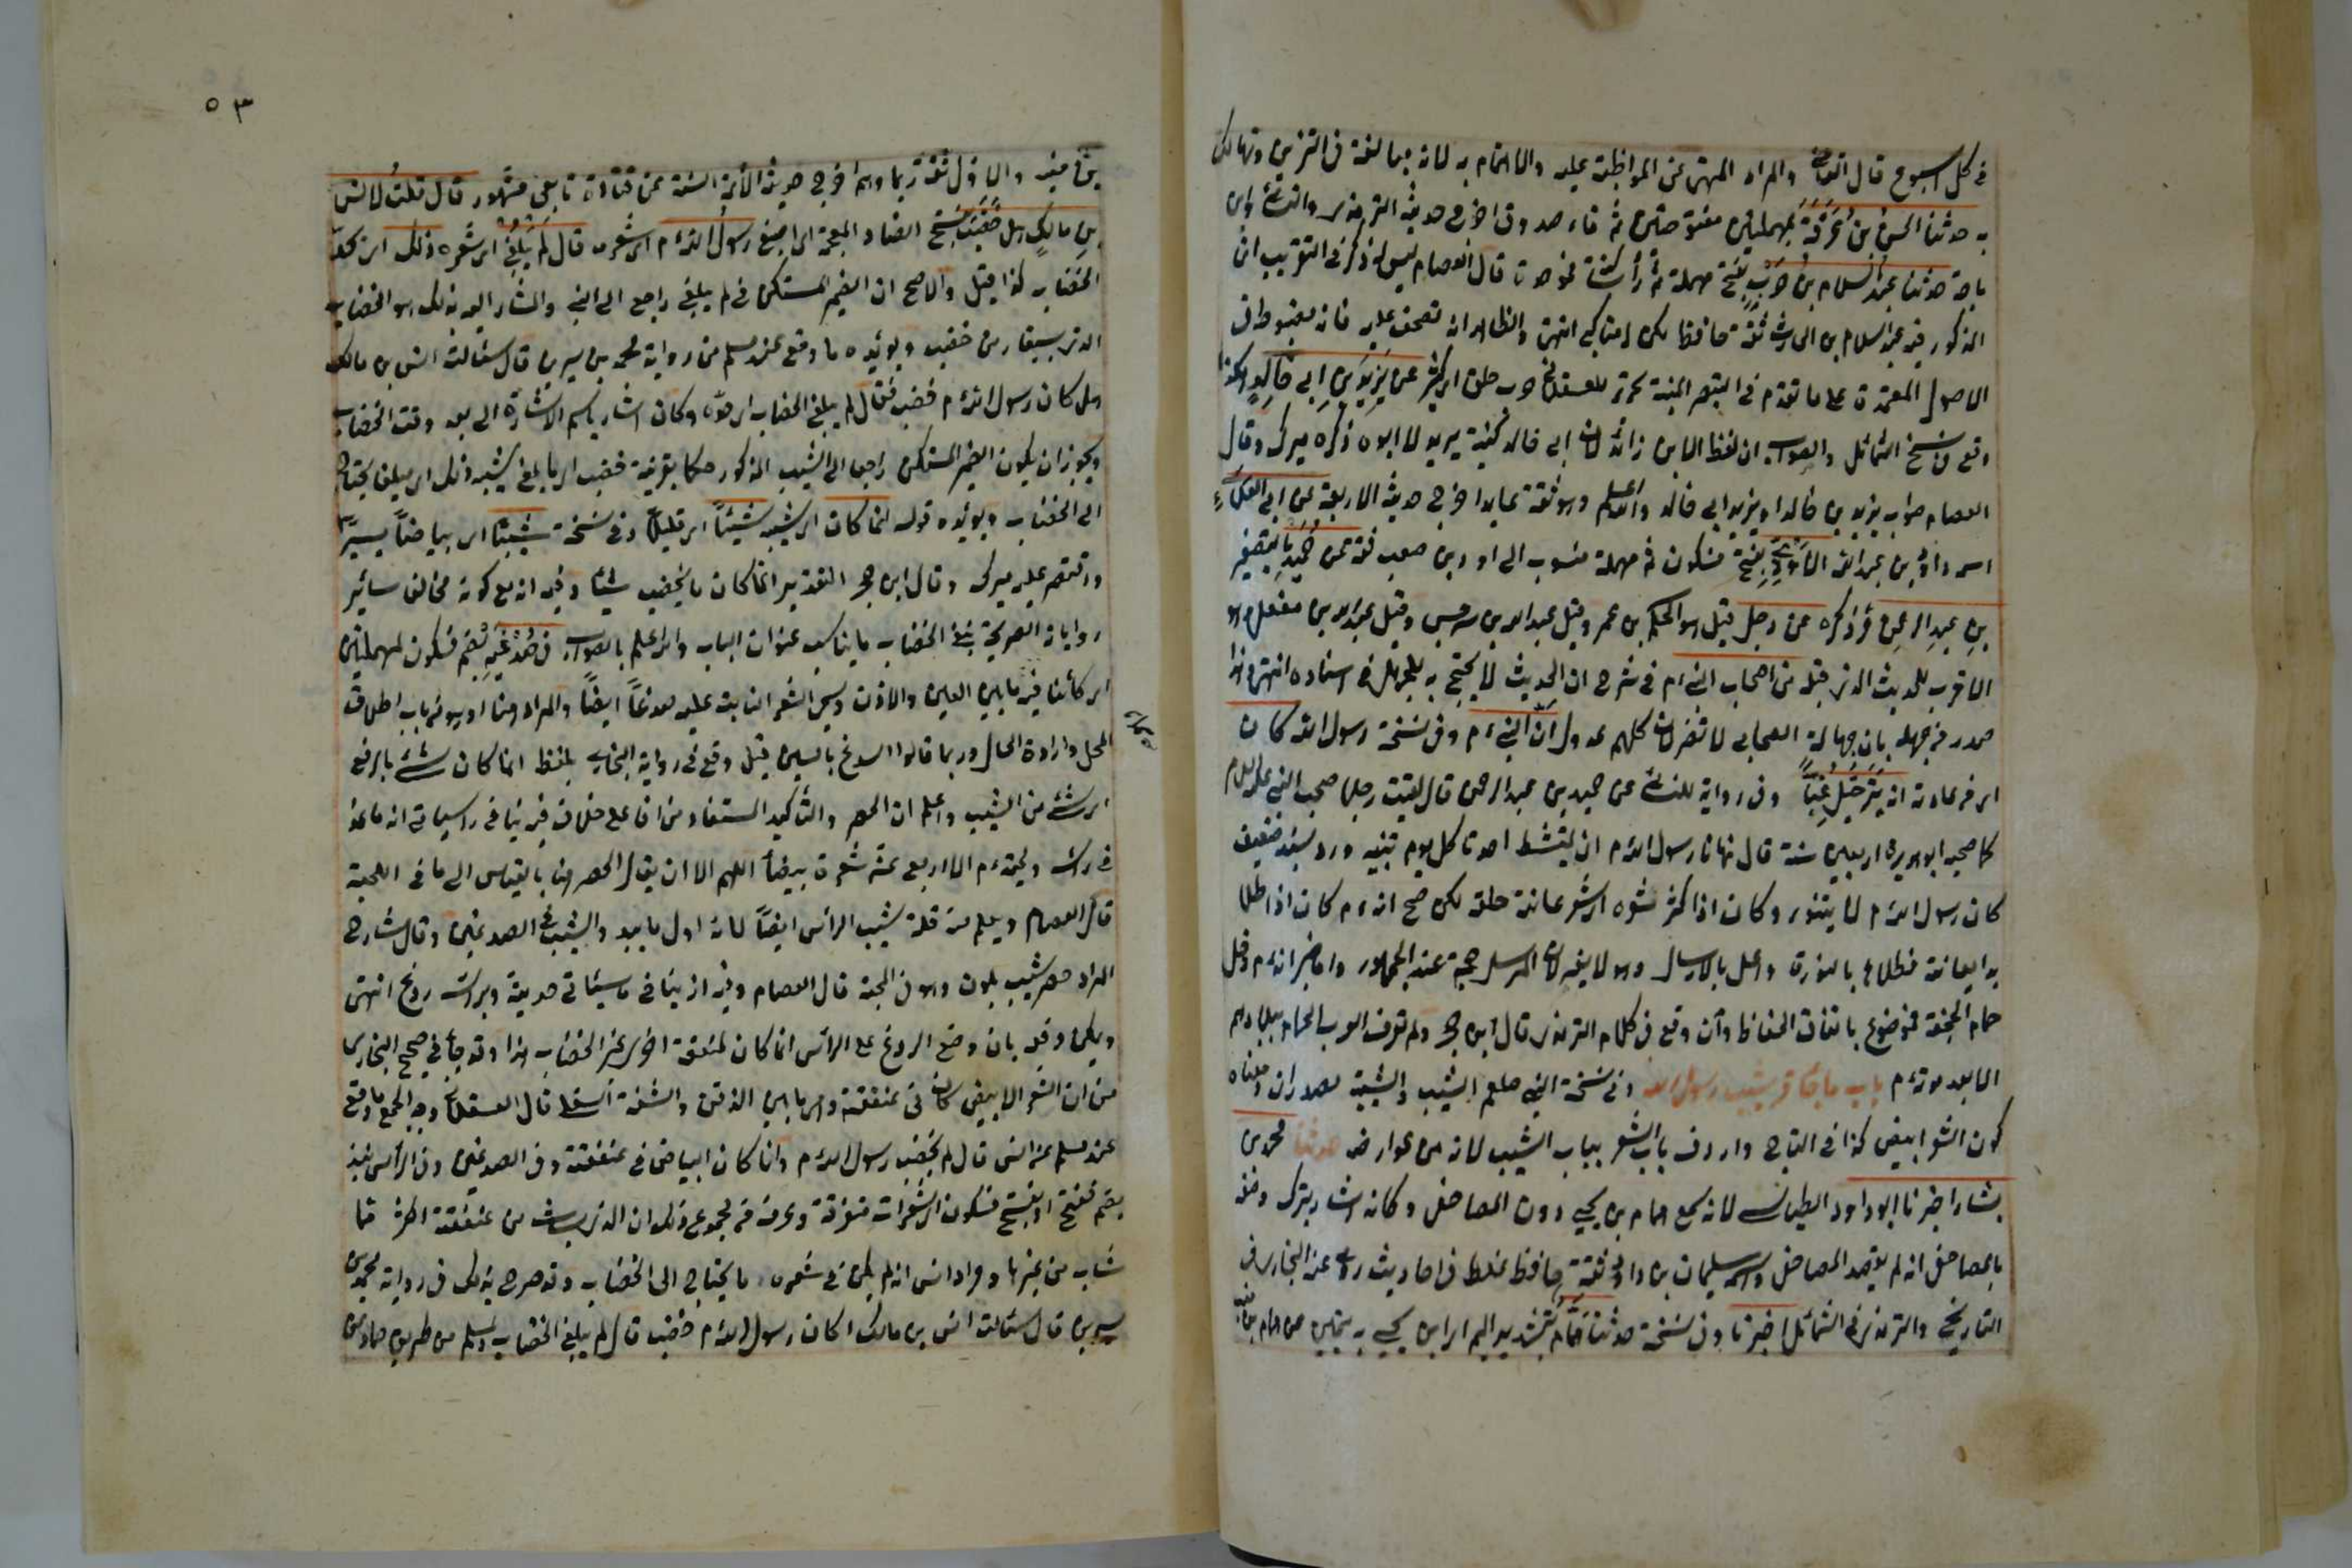 في كل اسبوع قال القاضي والمراد النهي عن المواظبة عليه والاهتمام به لانه مبالغة في التزيين وتهالك
به حدثنا الحسن بن عرفة بمهملتين مفتوحتين ثم فاء صدوق اخرج حديثه الترمذي والنسائي وابن
ماجة حدثنا عبد السلام بن حرب بفتح مهملة ثم راء ساكنة فموحدة قال العصام ليس له ذكر في التقريب انما
المذكور فيه عبد السلام بن الحارث ثقة حافظ لكن له مناكير انتهى والظاهر انه تصحف عليه فانه مضبوط في
الاصول المعتمدة على ما تقدم في تبصير المنتبه بتحرير المشتبه للعسقلاني حرب خلق اي كثير عن يزيد بن ابي خالد هكذا
وقع في نسخ الشمائل والصواب ان لفظ الابن زائد لان ابي خالد كنية يزيد لا ابوه ذكره ميرك وقال
العصام صوابه يزيد بن خالد او يزيد ابي خالد والله اعلم وهو ثقة عابد اخرج حديثه الاربعة عن ابي العلاء
اسمه داود بن عبد الله الاودي بفتح فسكون فمهملة منسوب الى اود بن صعب ثقة عن حميد بالتصغير
بن عبد الرحمن مر ذكره عن رجل قيل هو الحكم بن عمرو وقيل عبد الله بن سرجس وقيل عبد الله بن مغفل وهو
الاقرب للحديث الذي قبله من اصحاب النبي م في شرح ان الحديث لا يحتج به لجهل في اسناده انتهى وهذا
صدر من جهله بان جهالة الصحابي لا تضر لانهم كلهم عدول ان النبي م وفي نسخة رسول الله كان
اي من عادته انه يترجل غبا وفي رواية للنسائي عن حميد بن عبد الرحمن قال لقيت رجلا صحب النبي عليه السلام
كما صحبه ابو هريرة اربعين سنة قال نهانا رسول الله م ان يمتشط احدنا كل يوم تنبيه ورد بسند ضعيف
كان رسول الله م لا يتنور وكان اذا كثر شعره اي شعر عانته حلقه لكن صح انه م كان اذا طلا
بدأ بعانته فطلاها بالنورة واعل بالارسال وهو لا يضر لان المرسل حجة عند الجمهور واما خبر انه م دخل
حمام الجحفة فموضوع باتفاق الحفاظ وان وقع في كلام الترمذي قال ابن حجر ولم تعرف العرب الحمام ببلادهم
الا بعد موته م باب ما جاء في شيب رسول الله وفي نسخة النبي صلعم الشيب والشيبة مصدران ومعناه
كون الشعر ابيض كذا في التاج واردف باب الشعر بباب الشيب لانه من عوارضه حدثنا محمد بن
بشار اخبرنا ابو داود الطيالسي لانه سمع همام بن يحيى دون المصاحفي وكانه اشار بترك وصفه
بالمصاحفي انه لم يقصد المصاحفي واسمه سليمان بن داود ثقة حافظ غلط في احاديث روى عنه البخاري في
التاريخ والترمذي في الشمائل اخبرنا وفي نسخة حدثنا همام بتشديد الميم اي ابن يحيى
٥٣
بن منبه والاول ثقة ربما وهم اخرج حديثه الائمة الستة عن قتادة تابعي مشهور قال قلت لانس
بن مالك هل خضب بفتح الضاد المعجمة اي اصبغ رسول الله م اي شعره قال لم يبلغ اي شعره ذلك اي حد
الخضاب كذا قيل والاصح ان الضمير المستكن في لم يبلغ راجع الى النبي والمشار اليه بذلك هو الخضاب
الذي يستفاد من خضب ويؤيده ما وقع عند مسلم من رواية محمد بن سيرين قال سئالت انس بن مالك
هل كان رسول الله م خضب فقال لم يبلغ الخضاب اي حده وكان اشار باسم الاشارة الى بعد وقت الخضاب
ويجوز ان يكون الضمير المستكن راجعا الى الشيب المذكور حكما بقرينة خضب اي ما بلغ شيبه ذلك اي مبلغا يحتاج
الى الخضاب ويؤيده قوله انما كان اي شيبه شيئا اي قليلا وفي نسخة شيبا اي بياضا يسيرا
واقتصر عليه ميرك وقال ابن حجر التقدير انما كان ما يخضب شيئا وفيه انه مع كونه مخالف سائر
روايات الصريحة بنفي الخضاب ما يناسب عنوان الباب والله اعلم بالصواب في صدغيه بضم فسكون لمهملتين
اي كائنا فيهما بين العين والاذن ويسمى الشعر النابت عليه صدغا ايضا والمراد هنا او هو من باب اطلاق
المحل وارادة الحال وربما قالوا السدغ بالسين قيل وقع في رواية البخاري بلفظ انما كان شئ بالرفع
اي شئ من الشيب واعلم ان الحصر والتأكيد المستفاد من انما على خلاف فيه ينافي ما سيأتي انه ما عد
في رأسه ولحيته م الا اربع عشرة شعرة بيضاء اللهم الا ان يقال الحصر هنا بالقياس الى ما في اللحية
قال العصام ويعلم منه قلة شيب الرأس ايضا لانه اول ما يبدو الشيب في الصدغين وقال شارح
المراد حصر شيب يلون وهو في اللحية قال العصام وفيه انه ينافي ما سيأتي حديثه وبرأسه ردغ انتهى
ويمكن دفعه بان وضع الردغ على الرأس انما كان لمنفعة اخرى غير الخضاب هذا وقد جاء في صحيح البخاري
من ان الشعر الابيض كان في عنفقته وهي ما بين الذقن والشفة السفلى قال العسقلاني وجه الجمع ما وقع
عند مسلم عن انس قال لم يخضب رسول الله م وانما كان البياض في عنفقته وفي الصدغين وفي الرأس نبذ
بضم ففتح او بفتح فسكون اي شعرات متفرقة وعرف من مجموع ذلك ان الذي شاب من عنفقته اكثر مما
شاب من غيرها ومراد انس انه لم يكن في شعره ما يحتاج الى الخضاب وقد صرح بذلك في رواية محمد بن
سيرين قال سئالت انس بن مالك اكان رسول الله م خضب قال لم يبلغ الخضاب ولمسلم من طريق حماد عن